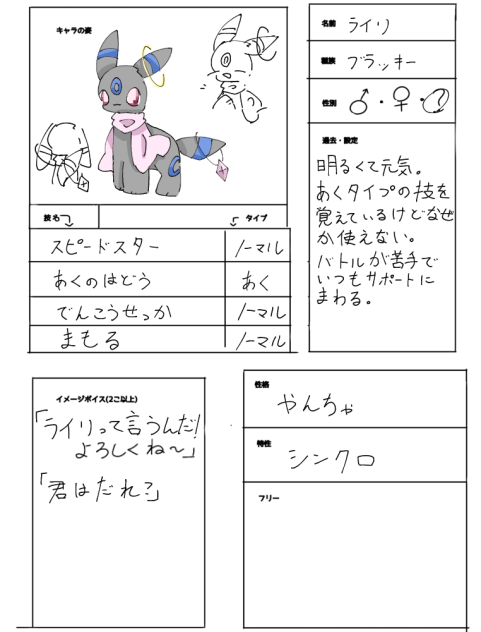 キャラの姿
名前 ライリ
種族 ブラッキー
性別 ♂・♀・?
過去・設定
明るくて元気。
あくタイプの技を
覚えているけどなぜ
か使えない。
バトルが苦手で
いつもサポートに
まわる。
技名 タイプ
スピードスター ノーマル
あくのはどう あく
でんこうせっか ノーマル
まもる ノーマル
イメージボイス(2こ以上)
「ライリって言うんだ!
よろしくね〜」
「君はだれ?」
性格
やんちゃ
特性
シンクロ
フリー